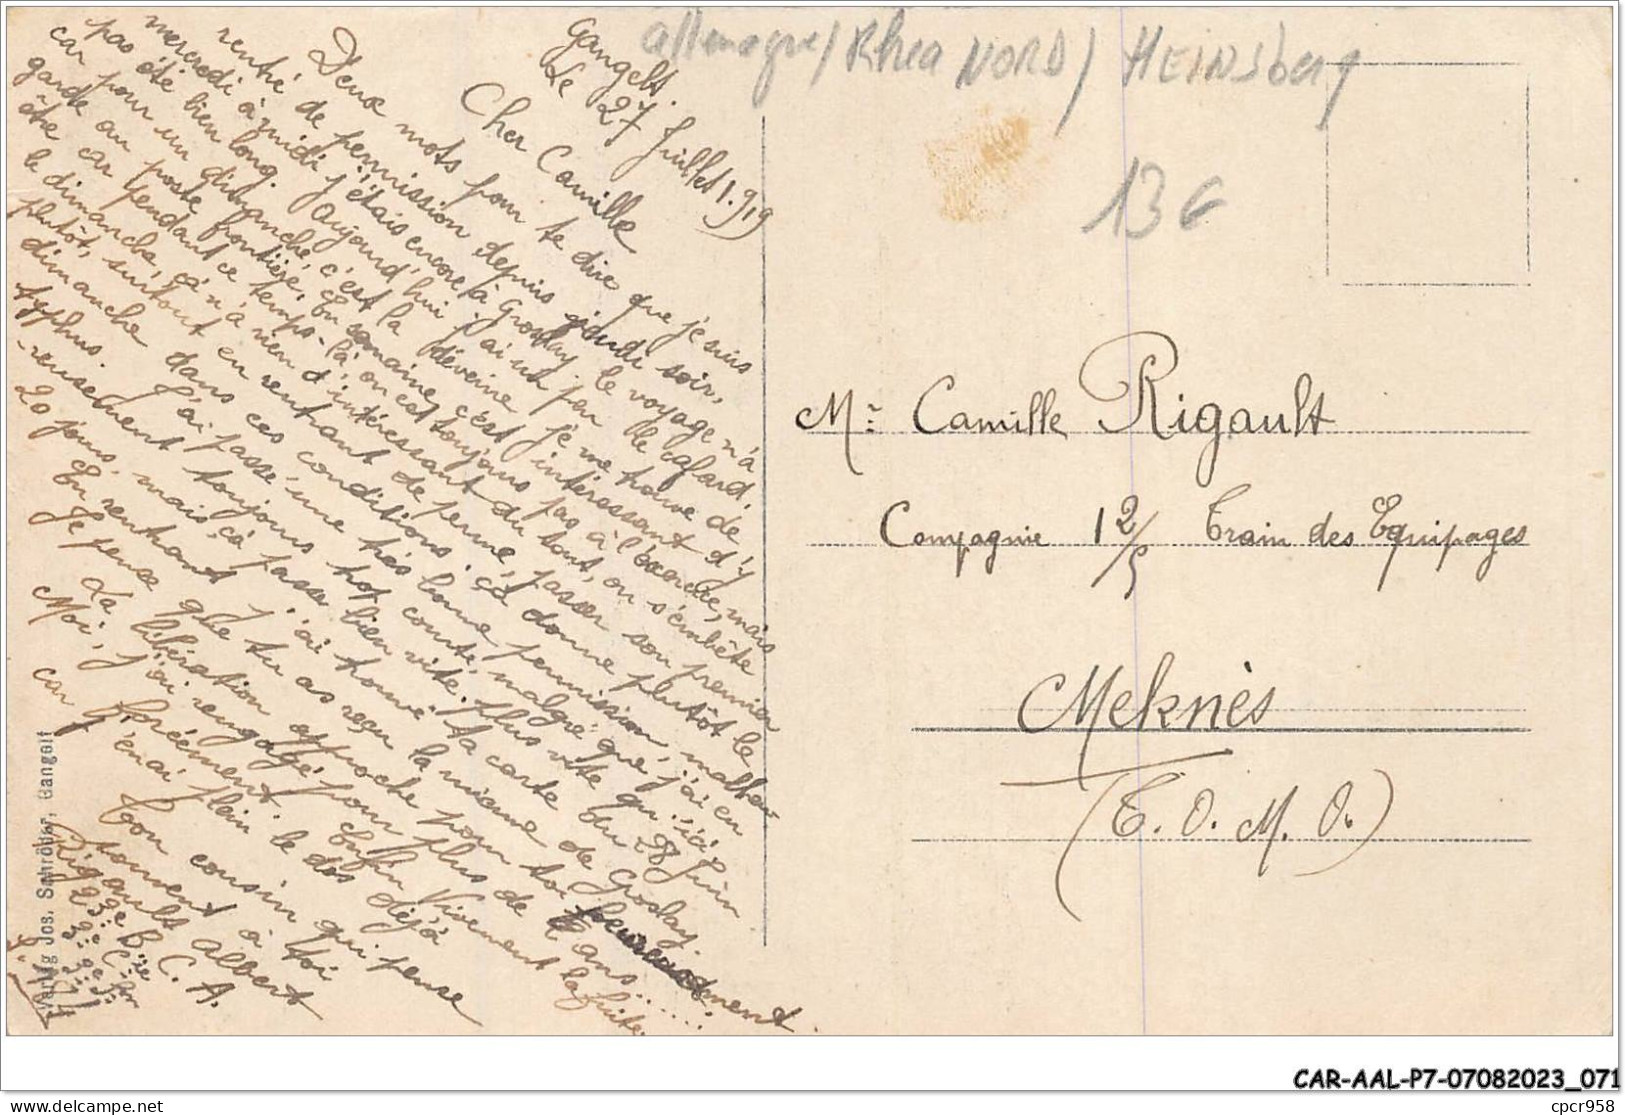 allemagne / Rhea NORD / HEINSberg
13€
Gangelt.
Le 27 Juillet 1919
Cher Camille
Deux mots pour te dire que je suis
rentré de permission depuis jeudi soir,
mercredi à midi j'étais encore à Groslay, le voyage n'a
pas été bien long. Aujourd'hui j'ai un peu le cafard,
car pour un dimanche, c'est la déveine je me trouve de
garde au poste frontière. En semaine, c'est intéressant d'y
être car pendant ce temps-là, on est toujours pas à l'exercice, mais
le dimanche, ça n'a rien d'intéressant du tout, on s'embête
plutôt, surtout en rentrant de perme, passer son premier
dimanche dans ces conditions, ça donne plutôt le
typhus. J'ai passé une très bonne permission, malheu-
reusement toujours trop courte, malgré que j'ai eu
20 jours, mais ça passe bien vite, plus vite qu'ici.
En rentrant j'ai trouvé ta carte du 28 Juin
Je pense que tu as reçu la mienne de Groslay.
La libération approche pour toi heureusement
Moi, j'ai rengagé pour plus de 2 ans......
car forcément. Enfin vivement la fuite.
j'en ai plein le dos déjà
Ton cousin qui pense
souvent à toi
Rigault Albert
23e B. C. A.
Verlag Jos. Schröder, Gangelt
Mr: Camille Rigault
Compagnie 12/5 Train des Equipages
Meknès
(T. O. M. O.)
CAR-AAL-P7-07082023_071
cpcr958